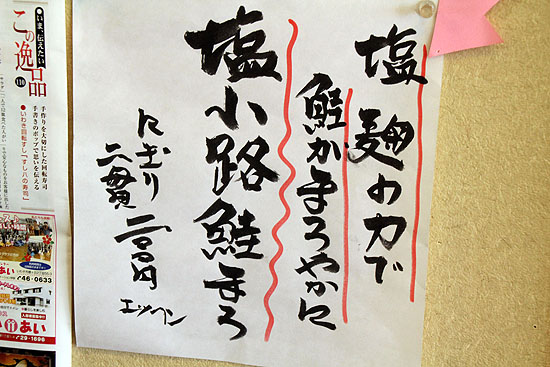 塩麹の力で
鮭がまろやかに
塩小路鮭まろ
にぎり
二貫 二百円
●いま、伝えたい
この逸品
110
手作りを大切にした回転寿司
手書きのポップで思いを伝える
●いわき回転すし「すし八の寿司」
46-0633
あい
29-1696